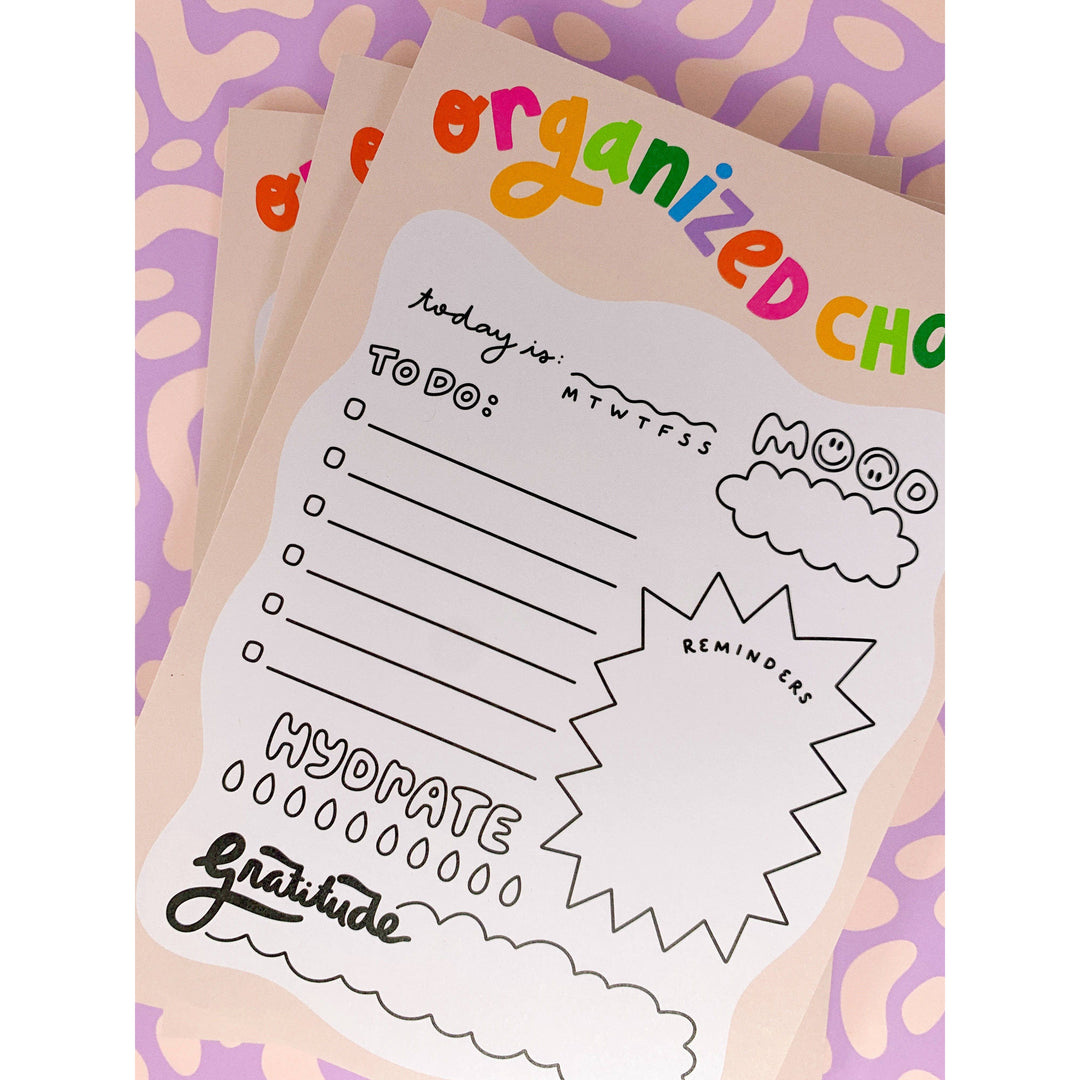 organized CHO
today is:
M T W T F S S
TO DO:
MOOD
REMINDERS
HYDRATE
gratitude